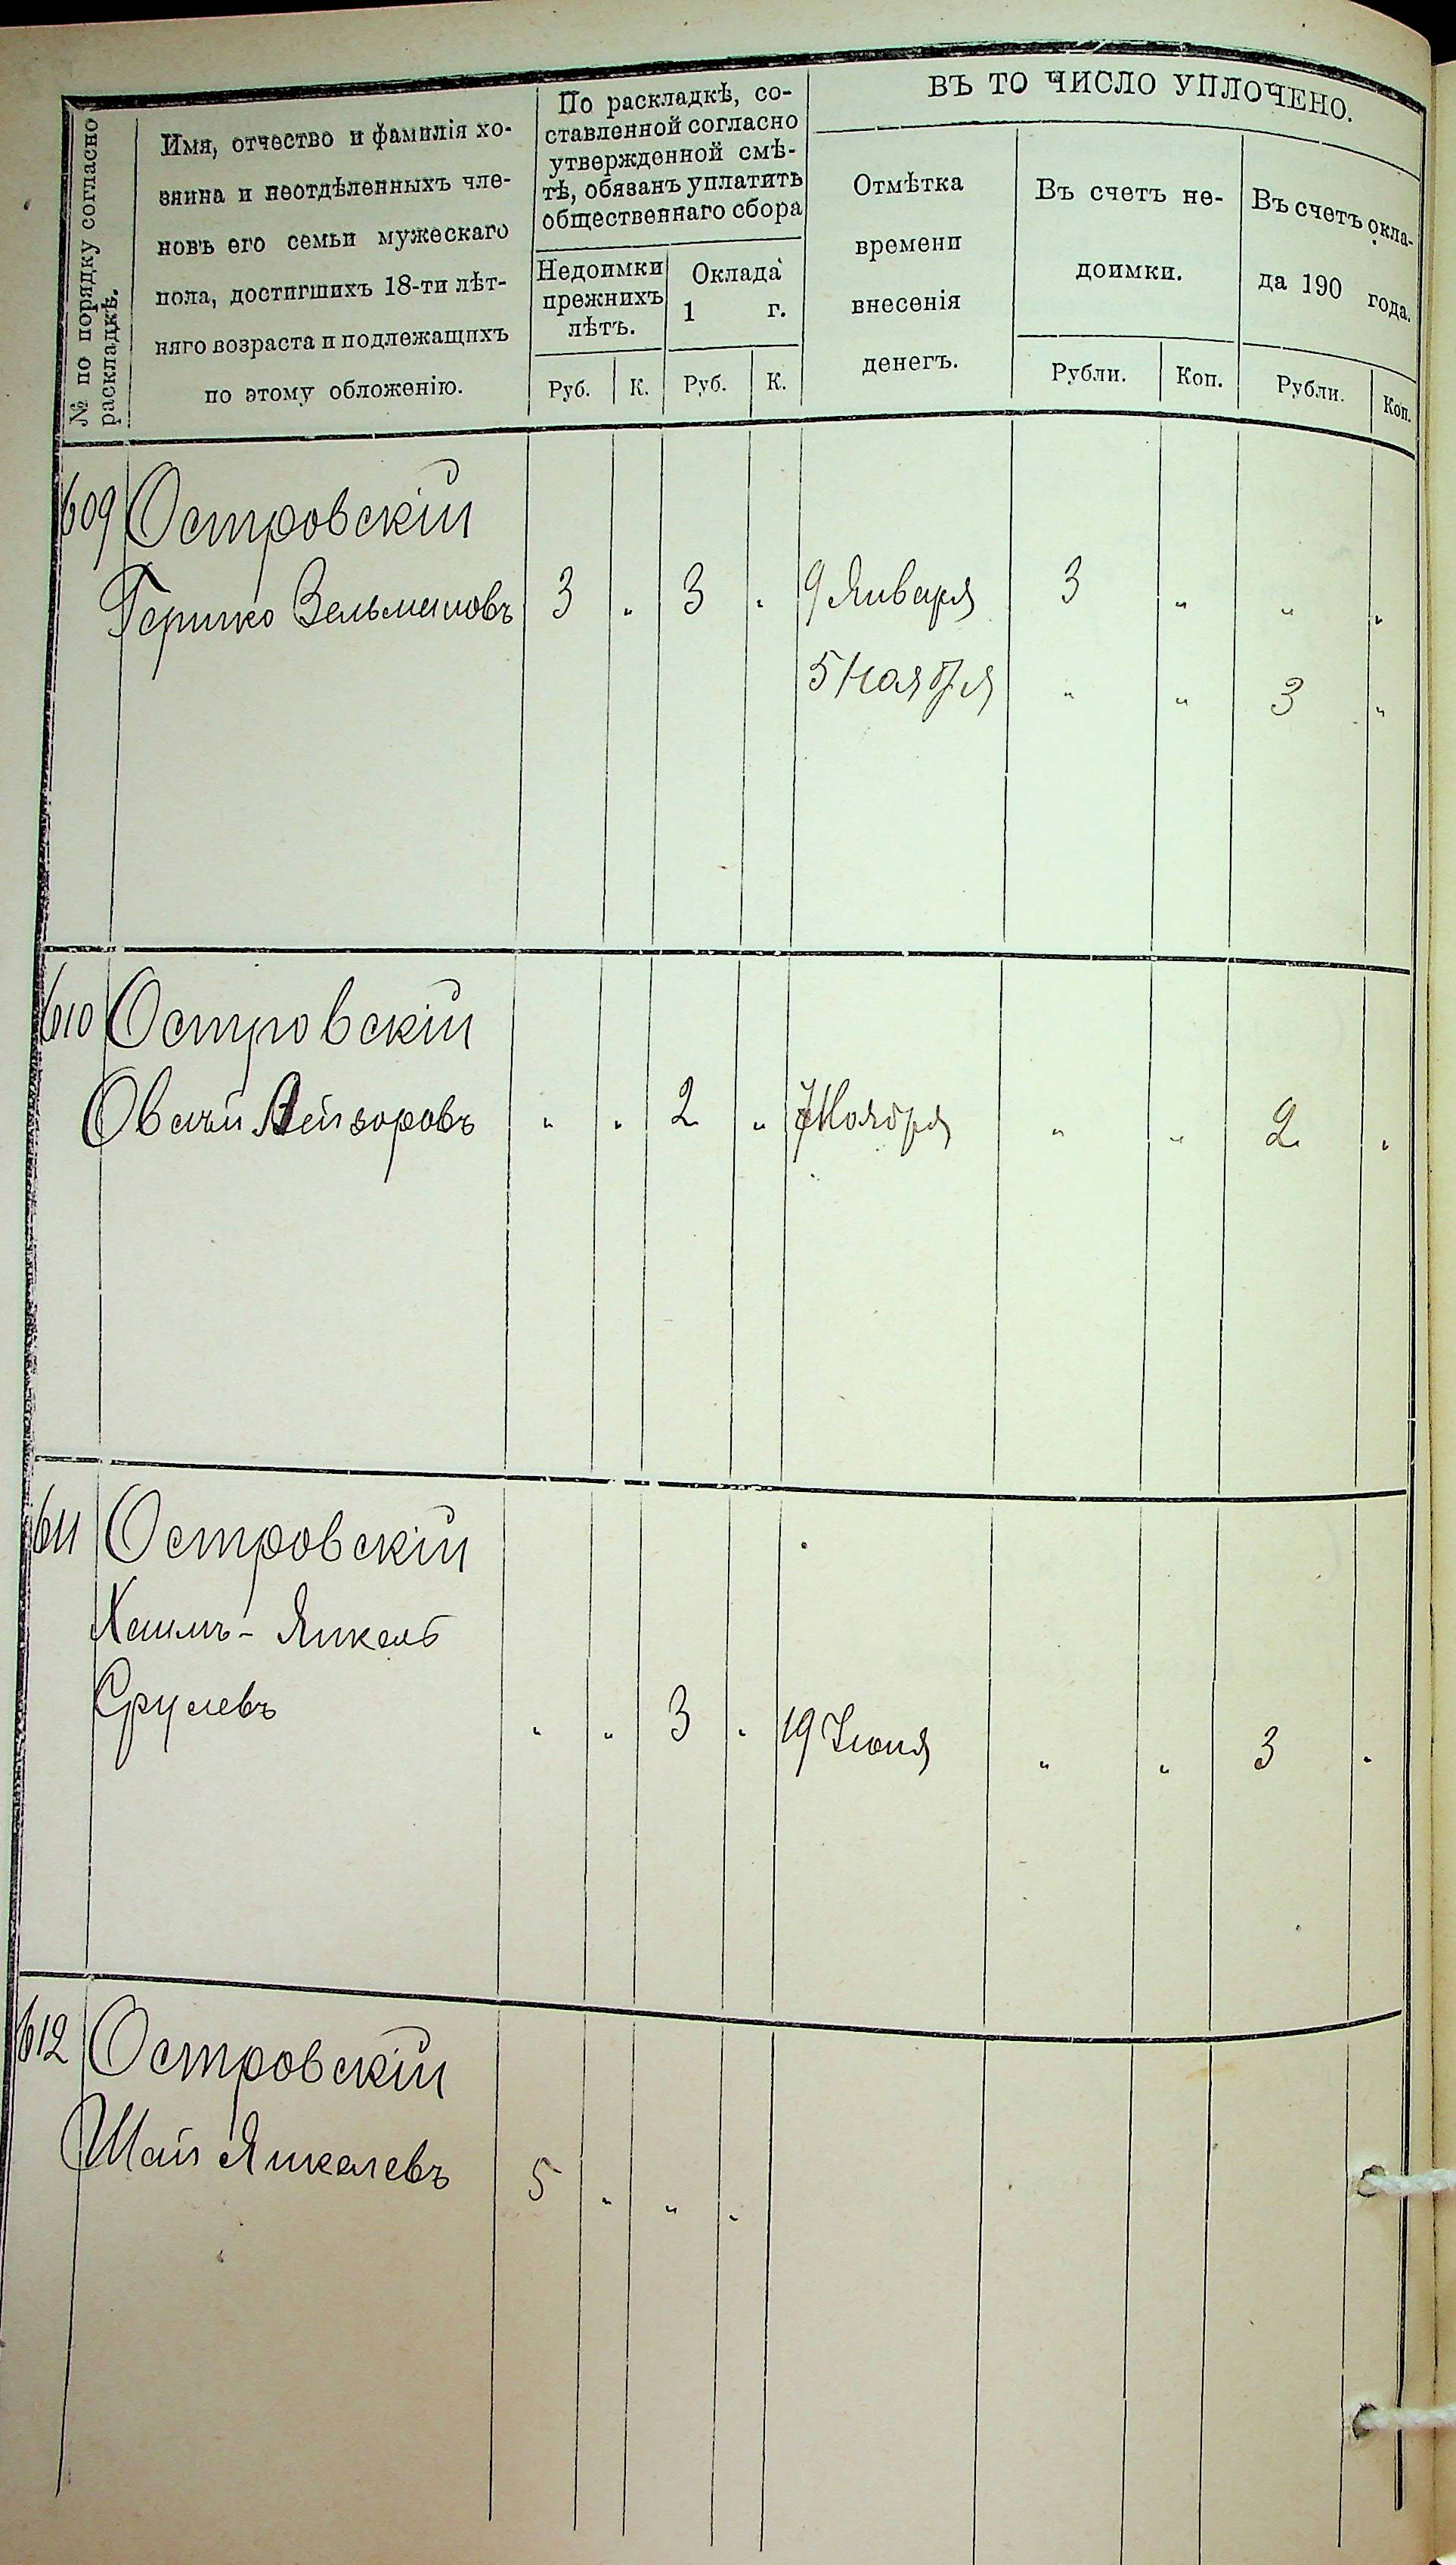 № по порядку согласно
раскладкѣ.
Имя, отчество и фамилія хо-
зяина и неотдѣленныхъ чле-
новъ его семьи мужескаго
пола, достигшихъ 18-ти лѣт-
няго возраста и подлежащихъ
по этому обложенію.
По раскладкѣ, со-
ставленной согласно
утвержденной смѣ-
тѣ, обязанъ уплатить
общественнаго сбора
Недоимки
прежнихъ
лѣтъ.
Оклада
1 г.
Руб. К. Руб. К.
ВЪ ТО ЧИСЛО УПЛОЧЕНО.
Отмѣтка
времени
внесенія
денегъ.
Въ счетъ не-
доимки.
Рубли. Коп.
Въ счетъ окла-
да 190 года.
Рубли. Коп.
609 Островскій
Гершко Зельмановъ 3 „ 3 „ 9 Января 3 „ „ „
5 Ноября „ „ 3 „
610 Островскій
Овсѣй Лейзоровъ „ „ 2 „ 7 Ноября „ „ 2 „
611 Островскій
Хаимъ-Янкель
Срулевъ „ „ 3 „ 19 Іюня „ „ 3 „
612 Островскій
Шая Янкелевъ 5 „ „ „